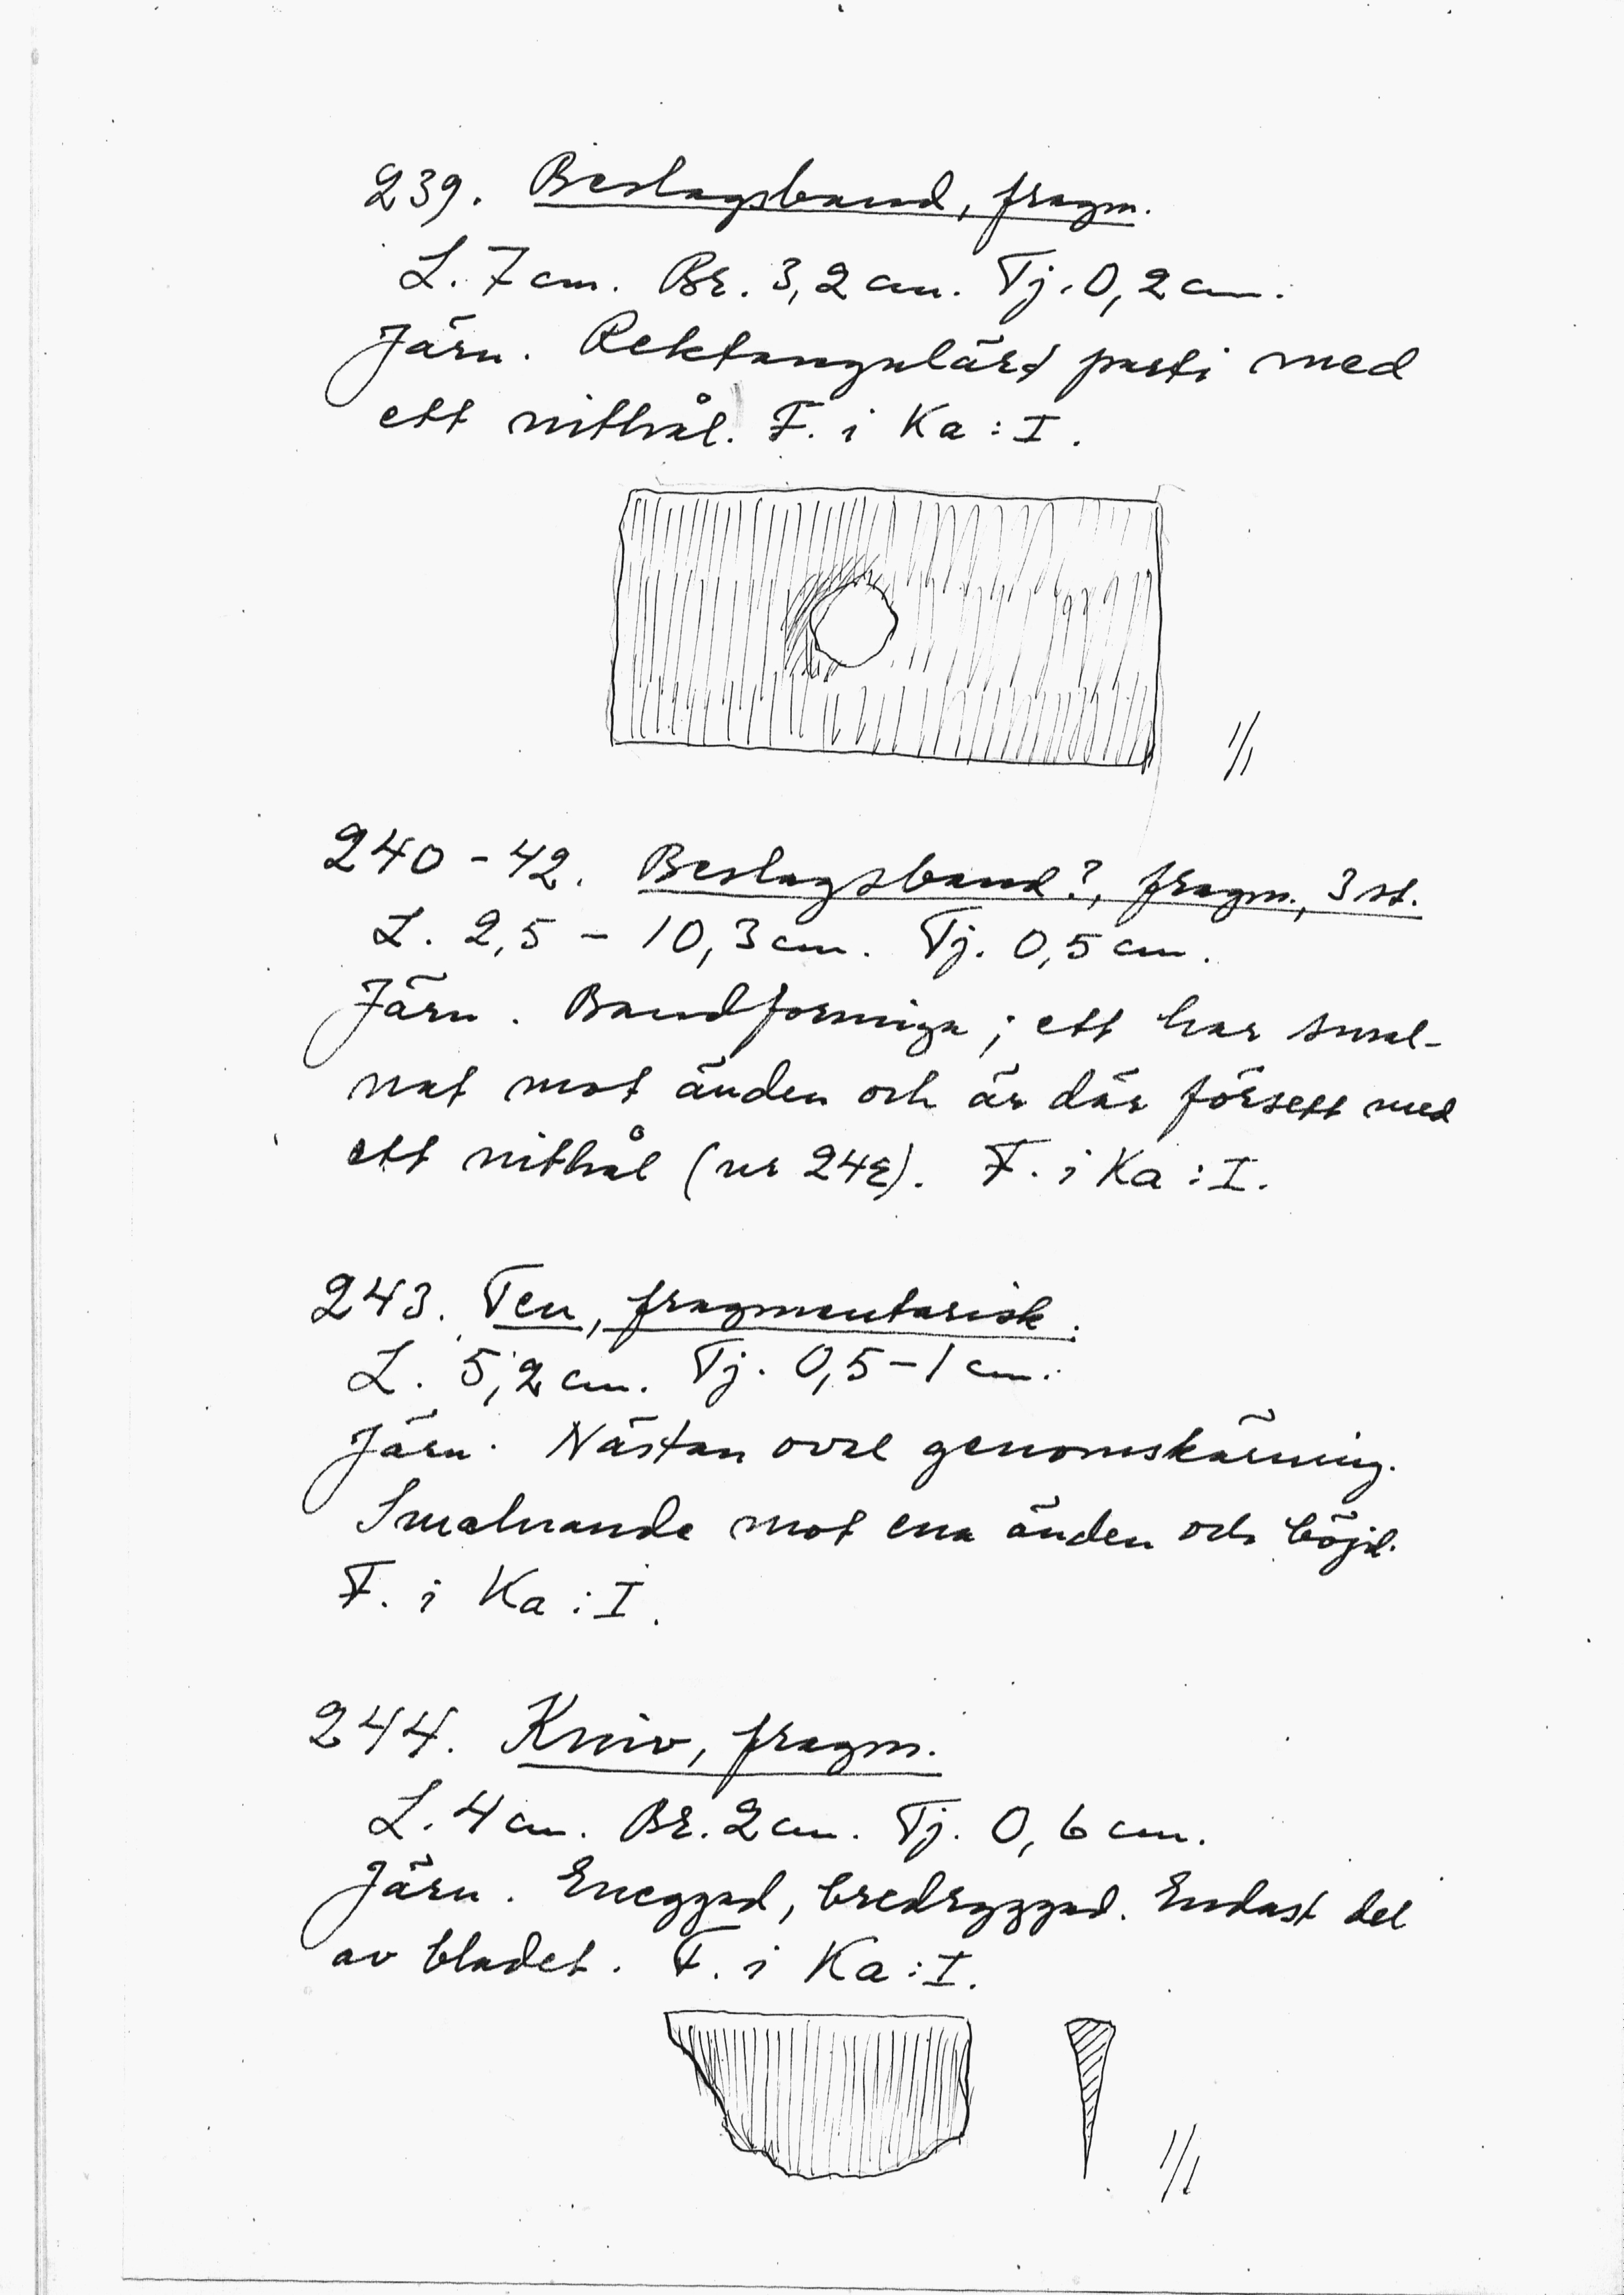 239. Beslagsband, fragm.
L. 7 cm. Br. 3,2 cm. Tj. 0,2 cm.
Järn. Rektangulärt parti med
ett nithål. F. i Ka : I.
1/1
240-42. Beslagsband?, fragm., 3 st.
L. 2,5 - 10,3 cm. Tj. 0,5 cm.
Järn. Bandformiga; ett har smal-
nat mot änden och är där försett med
ett nithål (nr 242). F. i Ka : I.
243. Ten, fragmentarisk.
L. 5,2 cm. Tj. 0,5-1 cm.
Järn. Nästan oval genomskärning.
Smalnande mot ena änden och böjd.
F. i Ka : I.
244. Kniv, fragm.
L. 4 cm. Br. 2 cm. Tj. 0,6 cm.
Järn. Eneggad, bredryggad. Endast del
av bladet. F. i Ka : I.
1/1